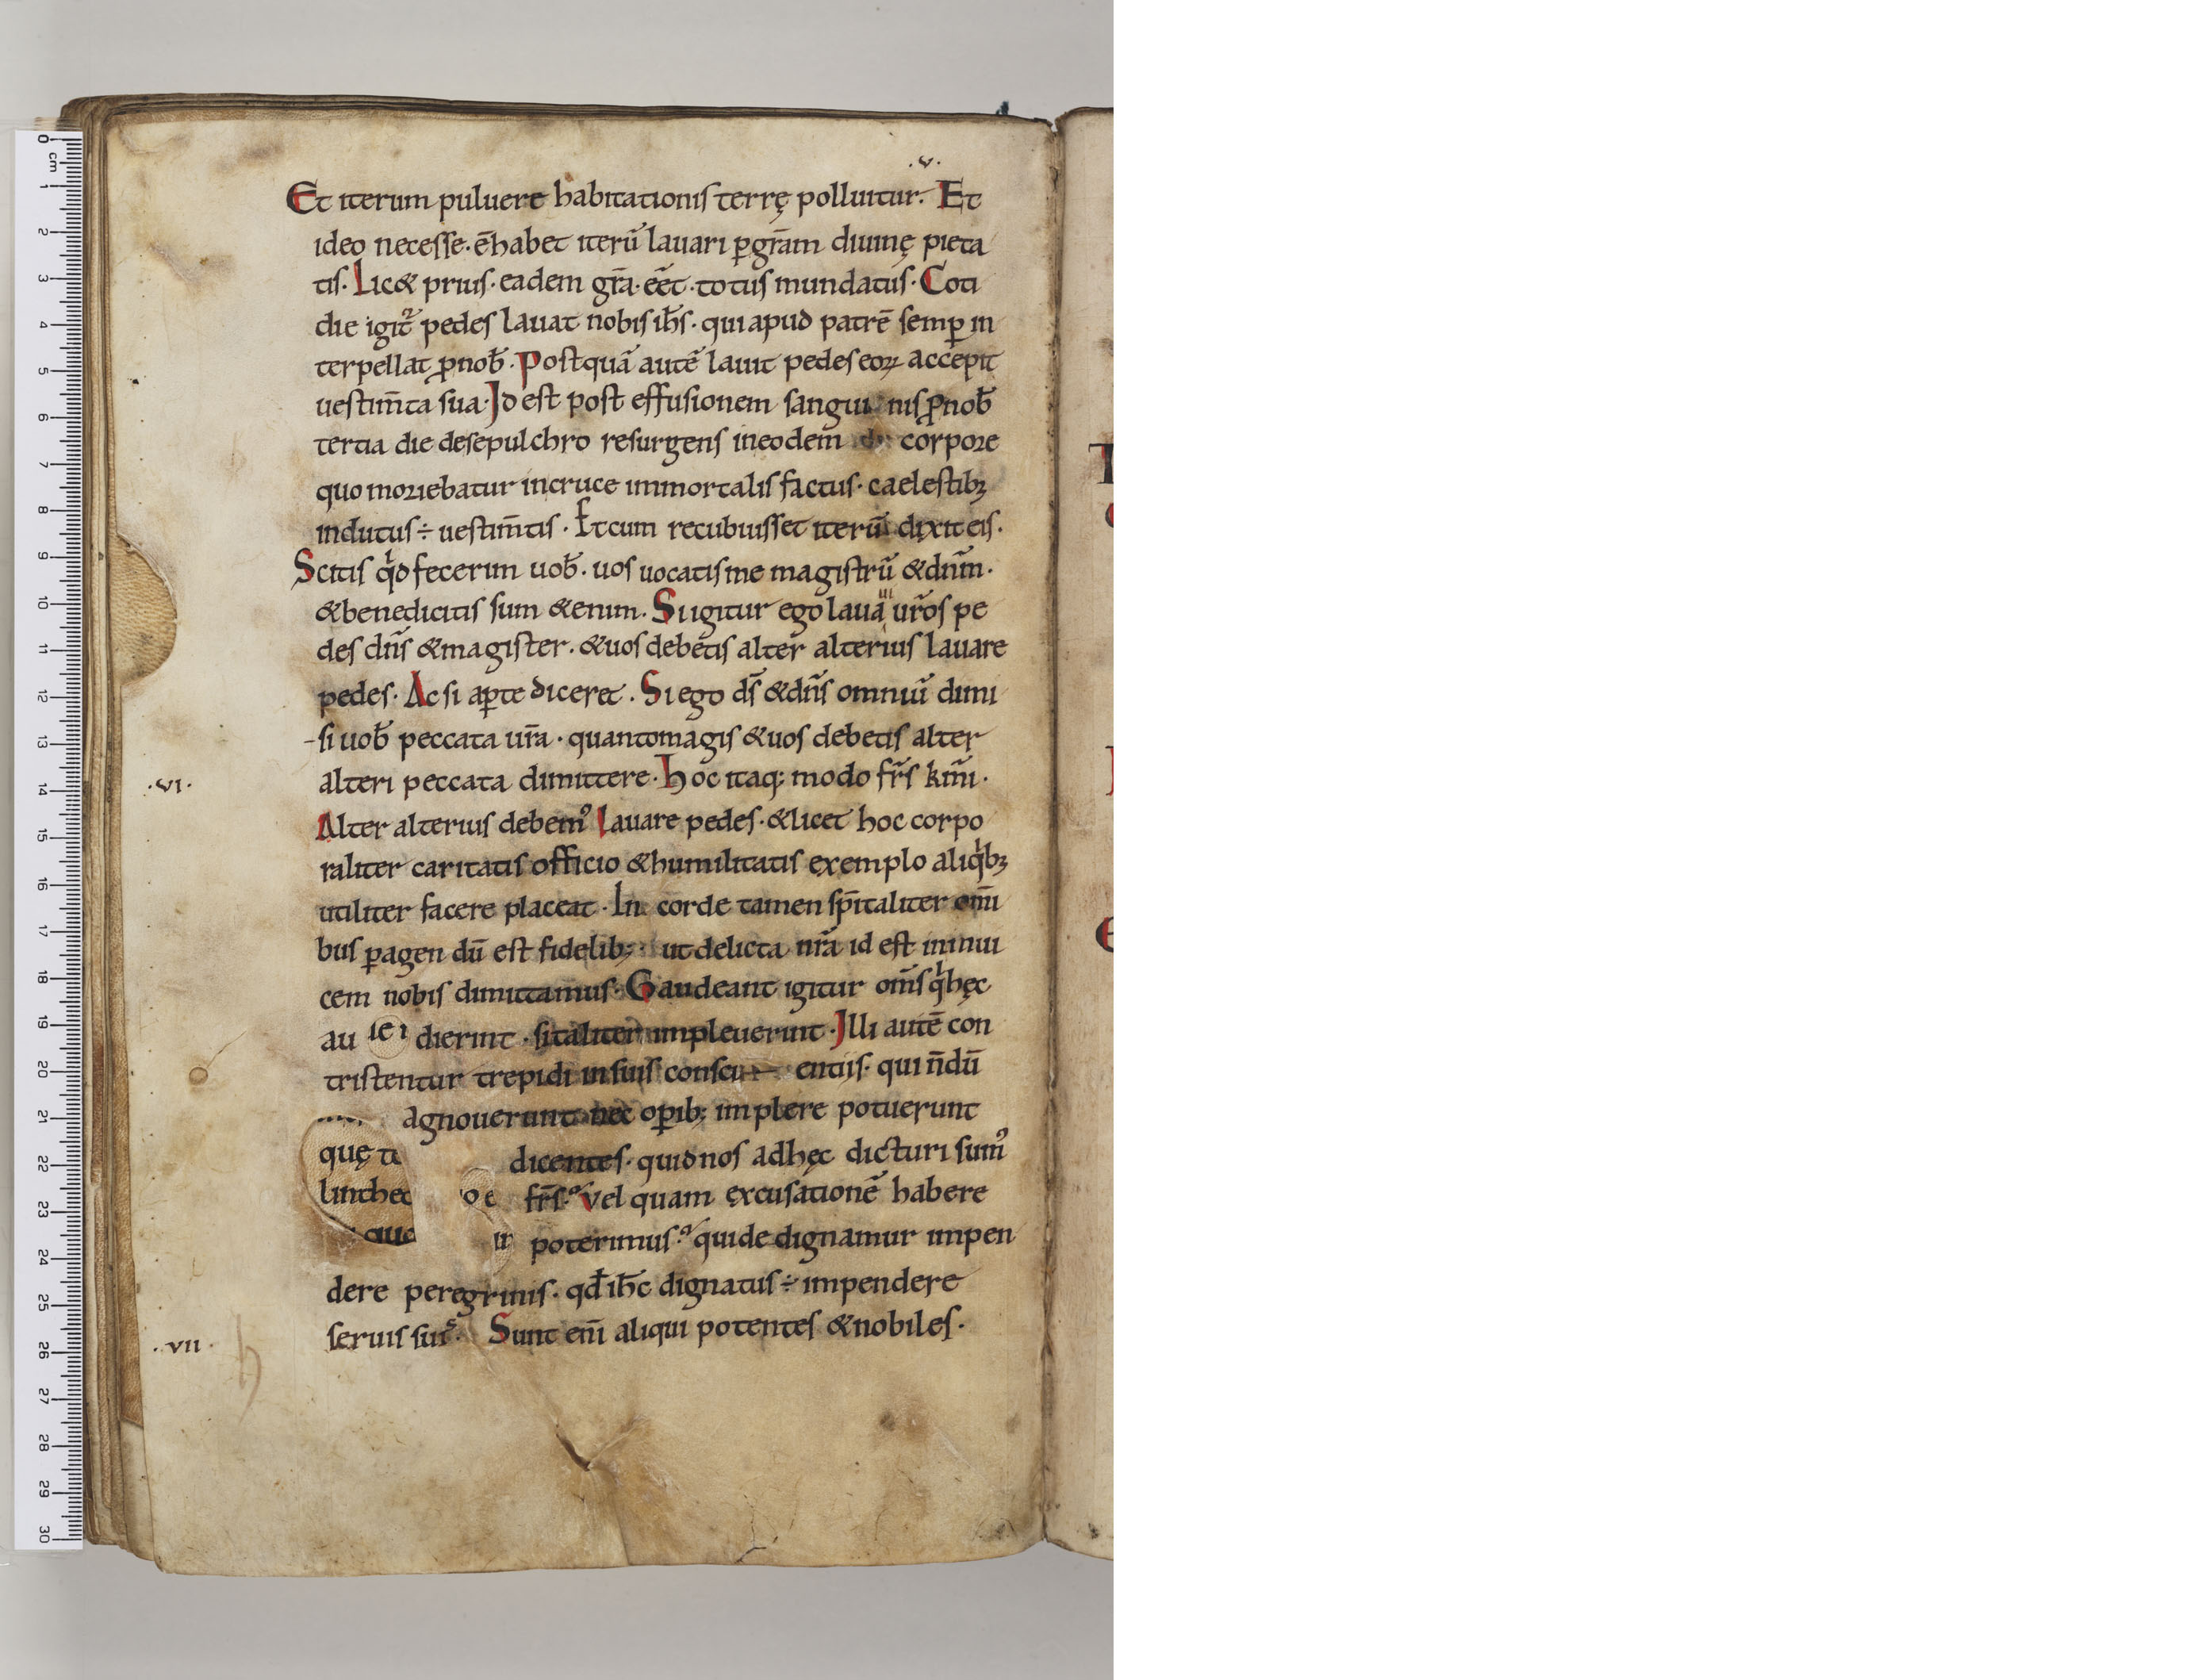 .v.
Et iterum puluere habitationis terrę polluitur. Et
ideo necesse. ē habet iterū lauari ꝑ gr̄am diuinę pieta
tis. Lic& prius. eadem gr̄a. eēt. totus mundatus. Coti
die igit᷑ pedes lauat nobis ih̄s. qui apud patrē semꝑ in
terpellat ꝓ nob̄. Postquā autē lauit pedes eoꝝ accepit
uestim̄ta sua. Id est post effusionem sangui nis ꝓ nob̄
tertia die de sepulchro resurgens in eodem corpore
quo moriebatur in cruce immortalis factus. caelestibꝫ
indutus ÷ uestim̄tis. Et cum recubuisset iterū dixit eis.
Scitis qͥd fecerim uob̄. uos uocatis me magistrū & dn̄m.
& benedicitis sum & enim. Si igitur ego lauaui ur̄os pe
des dn̄s & magister. & uos debetis alter alterius lauare
pedes. Ac si aꝑte diceret. Si ego ds̄ & dn̄s omniū dimi
si uob̄ peccata ur̄a. quanto magis & uos debetis alter
alteri peccata dimittere. Hoc itaq; modo fr̄s km̄i.
.vi.
Alter alterius debem⁹ lauare pedes. & licet hoc corpo
raliter caritatis officio & humilitatis exemplo aliqͥbꝫ
utiliter facere placeat. In corde tamen sp̄italiter om̄i
bus ꝑagendū est fidelib; ut delicta nr̄a id est inuui
cem nobis dimittamus. Gaudeant igitur om̄s qͥ hęc
au dierint. si taliter impleuerint. Illi autē con
tristentur trepidi in suis consci entiis. qui n̄dū
agnouerunt nec oꝑib; implere potuerunt
dicentes. quid nos ad hęc dicturi sum⁹
fr̄s. Vel quam excusationē habere
poterimus. qui dedignamur impen
dere peregrinis. qd̄ ih̄c dignatus ÷ impendere
seruis suis. Sunt eni̅ aliqui potentes & nobiles.
.vii.